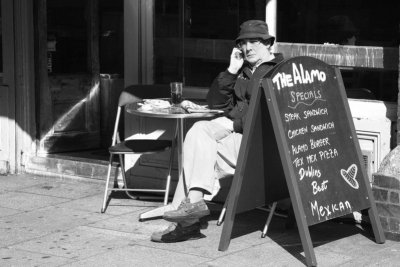 The Alamo
Specials
Steak Sandwich
Chicken Sandwich
Alamo Burger
Tex Mex Pizza
Dublins
Best
Mexican